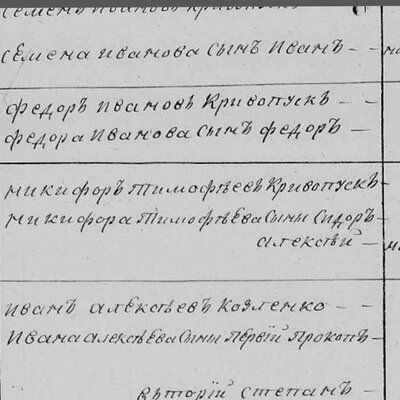 Семенъ Ивановъ Кривопускъ
Семена Иванова Сынъ Иванъ
Федоръ Ивановъ Кривопускъ
Федора Иванова Сынъ Федоръ
Никифоръ Тимофѣевъ Кривопускъ
Никифора Тимофѣева Сыны Сидоръ
Алексѣй
Иванъ Алексѣевъ Козленко
Ивана Алексѣева Сыны Первій Прокопъ
Вторій Степанъ